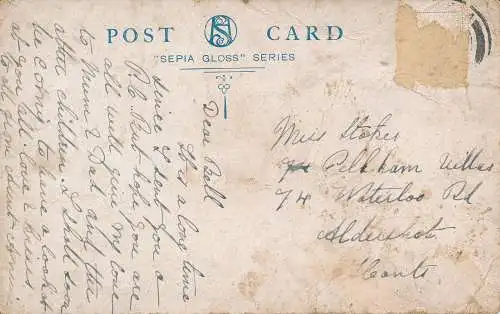 POST CARD
"SEPIA GLOSS" SERIES
Dear Nell
It's a long time
since I sent you a
P.C. But hope you are
all well give my love
to Mum & Dad and the
after children I shall soon
be coming to have a look at
at you all. love & kisses
to
Miss Stokes
74 Pelkham Villas
74 Waterloo Rd
Aldershot
Hants